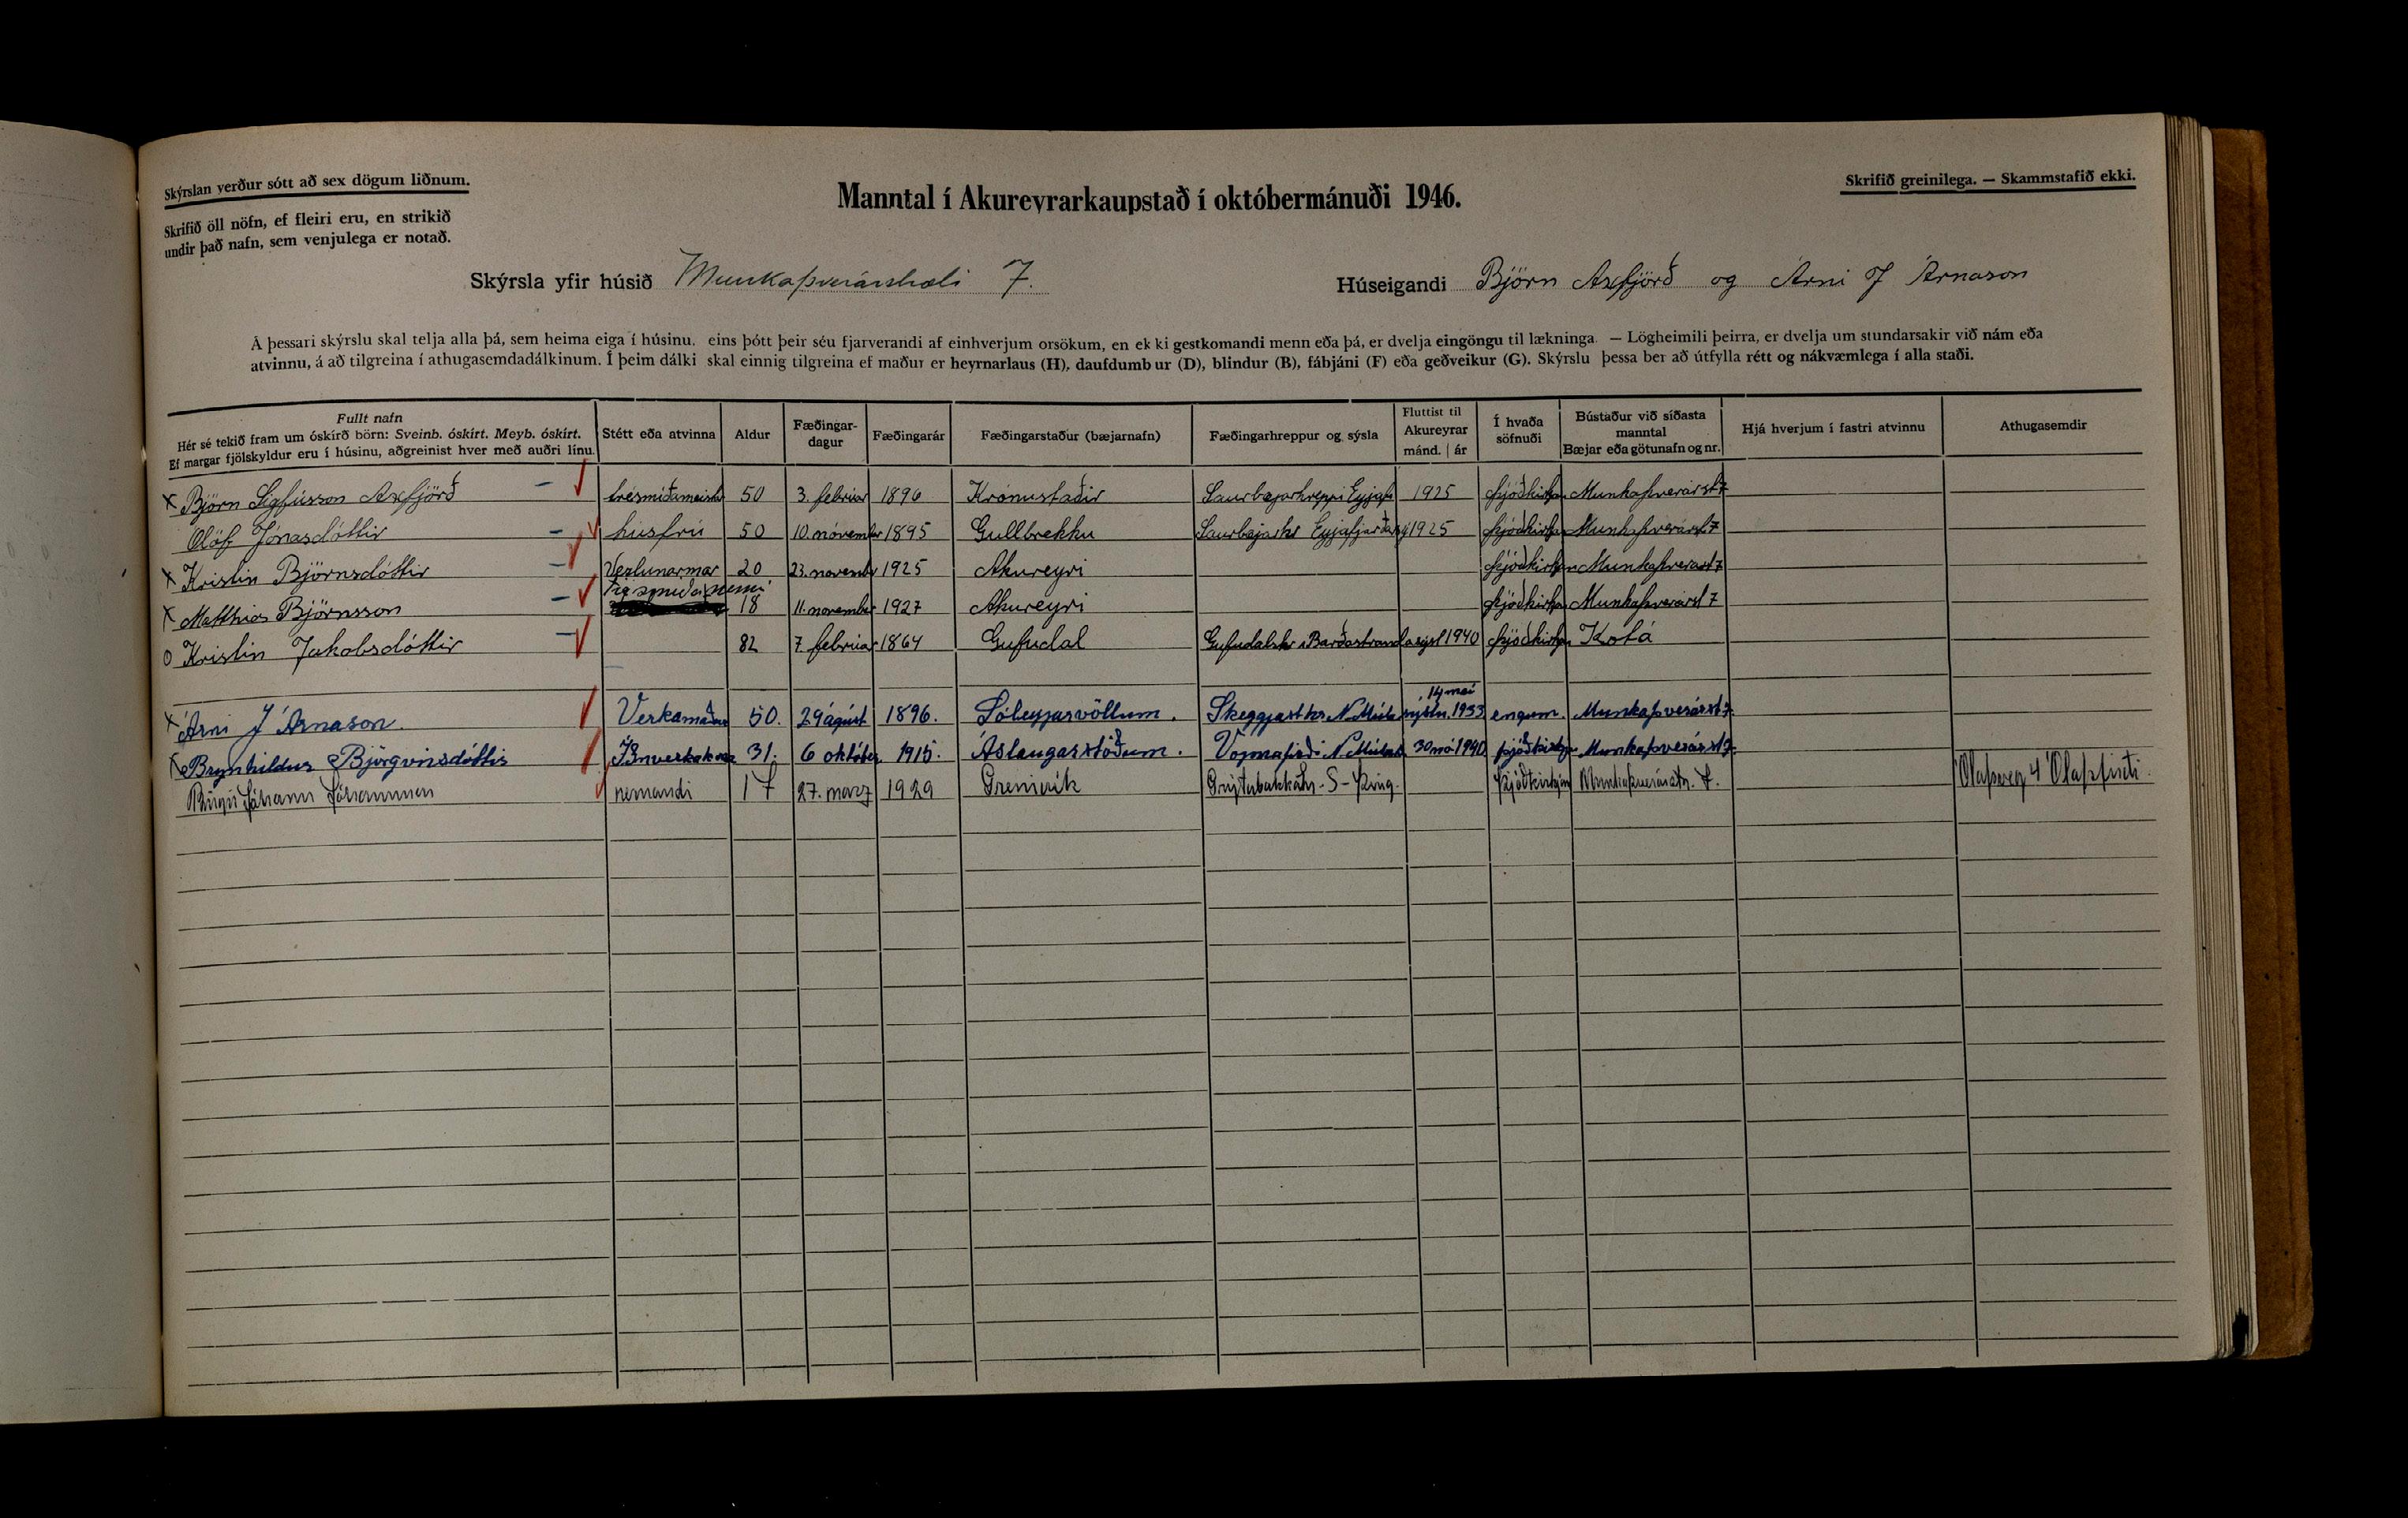 Skýrslan verður sótt að sex dögum liðnum.
Skrifið öll nöfn, ef fleiri eru, en strikið
undir það nafn, sem venjulega er notað.
Manntal í Akureyrarkaupstað í októbermánuði 1946.
Skrifið greinilega. — Skammstafið ekki.
Skýrsla yfir húsið Munkaþverárstræti 7.
Húseigandi Björn Axfjörð og Árni J Árnason
Á þessari skýrslu skal telja alla þá, sem heima eiga í húsinu, eins þótt þeir séu fjarverandi af einhverjum orsökum, en ekki gestkomandi menn eða þá, er dvelja eingöngu til lækninga. — Lögheimili þeirra, er dvelja um stundarsakir við nám eða
atvinnu, á að tilgreina í athugasemdadálkinum. Í þeim dálki skal einnig tilgreina ef maður er heyrnarlaus (H), daufdumbur (D), blindur (B), fábjáni (F) eða geðveikur (G). Skýrslu þessa ber að útfylla rétt og nákvæmlega í alla staði.
Fullt nafn
Hér sé tekið fram um óskírð börn: Sveinb. óskírt. Meyb. óskírt.
Ef margar fjölskyldur eru í húsinu, aðgreinist hver með auðri línu.
Stétt eða atvinna
Aldur
Fæðingar-
dagur
Fæðingarár
Fæðingarstaður (bæjarnafn)
Fæðingarhreppur og sýsla
Fluttist til
Akureyrar
mánd. | ár
Í hvaða
söfnuði
Bústaður við síðasta
manntal
Bæjar eða götunafn og nr.
Hjá hverjum í fastri atvinnu
Athugasemdir
x Björn Sigfússon Axfjörð — trésmíðameist 50 3. febrúar 1896 Krónustaðir Saurbæjarhreppi Eyjafj 1925 þjóðkirkjan Munkaþverárst 7
Ólöf Jónasdóttir — húsfrú 50 10. nóvember 1895 Gullbrekku Saurbæjarhr Eyjafjarðars 1925 þjóðkirkjan Munkaþverárst 7
x Kristín Björnsdóttir — Vezlunarmær 20 23. november 1925 Akureyri þjóðkirkjan Munkaþverárst 7
x Matthías Björnsson — Trésmíðanemi 18 11. november 1927 Akureyri þjóðkirkjan Munkaþverárst 7
o Kristín Jakobsdóttir — 82 7. febrúar 1864 Gufudal Gufudalshr Barðastrandasýsl 1940 þjóðkirkjan Kotá
x Árni J Árnason. Verkamaður 50. 29 ágúst 1896. Sóleyjarvöllum. Skeggjast hr. N Múlasýslu. 14 maí 1933 engum. Munkaþverárst 7.
x Brynhildur Björgvinsdóttir Iðnverkakona 31. 6 október. 1915. Áslaugarstöðum. Vopnafirði N. Múlas. 30 maí 1940 þjóðkirkju Munkaþverárst 7.
Birgir Jóhann Jóhannsson nemandi 17 27. marz 1929 Grenivík Grýtubakkahr. S-Þing. Þjóðkirkjan Munkaþverárstr. 7. Ólafsveg 4 Ólafsfirði.